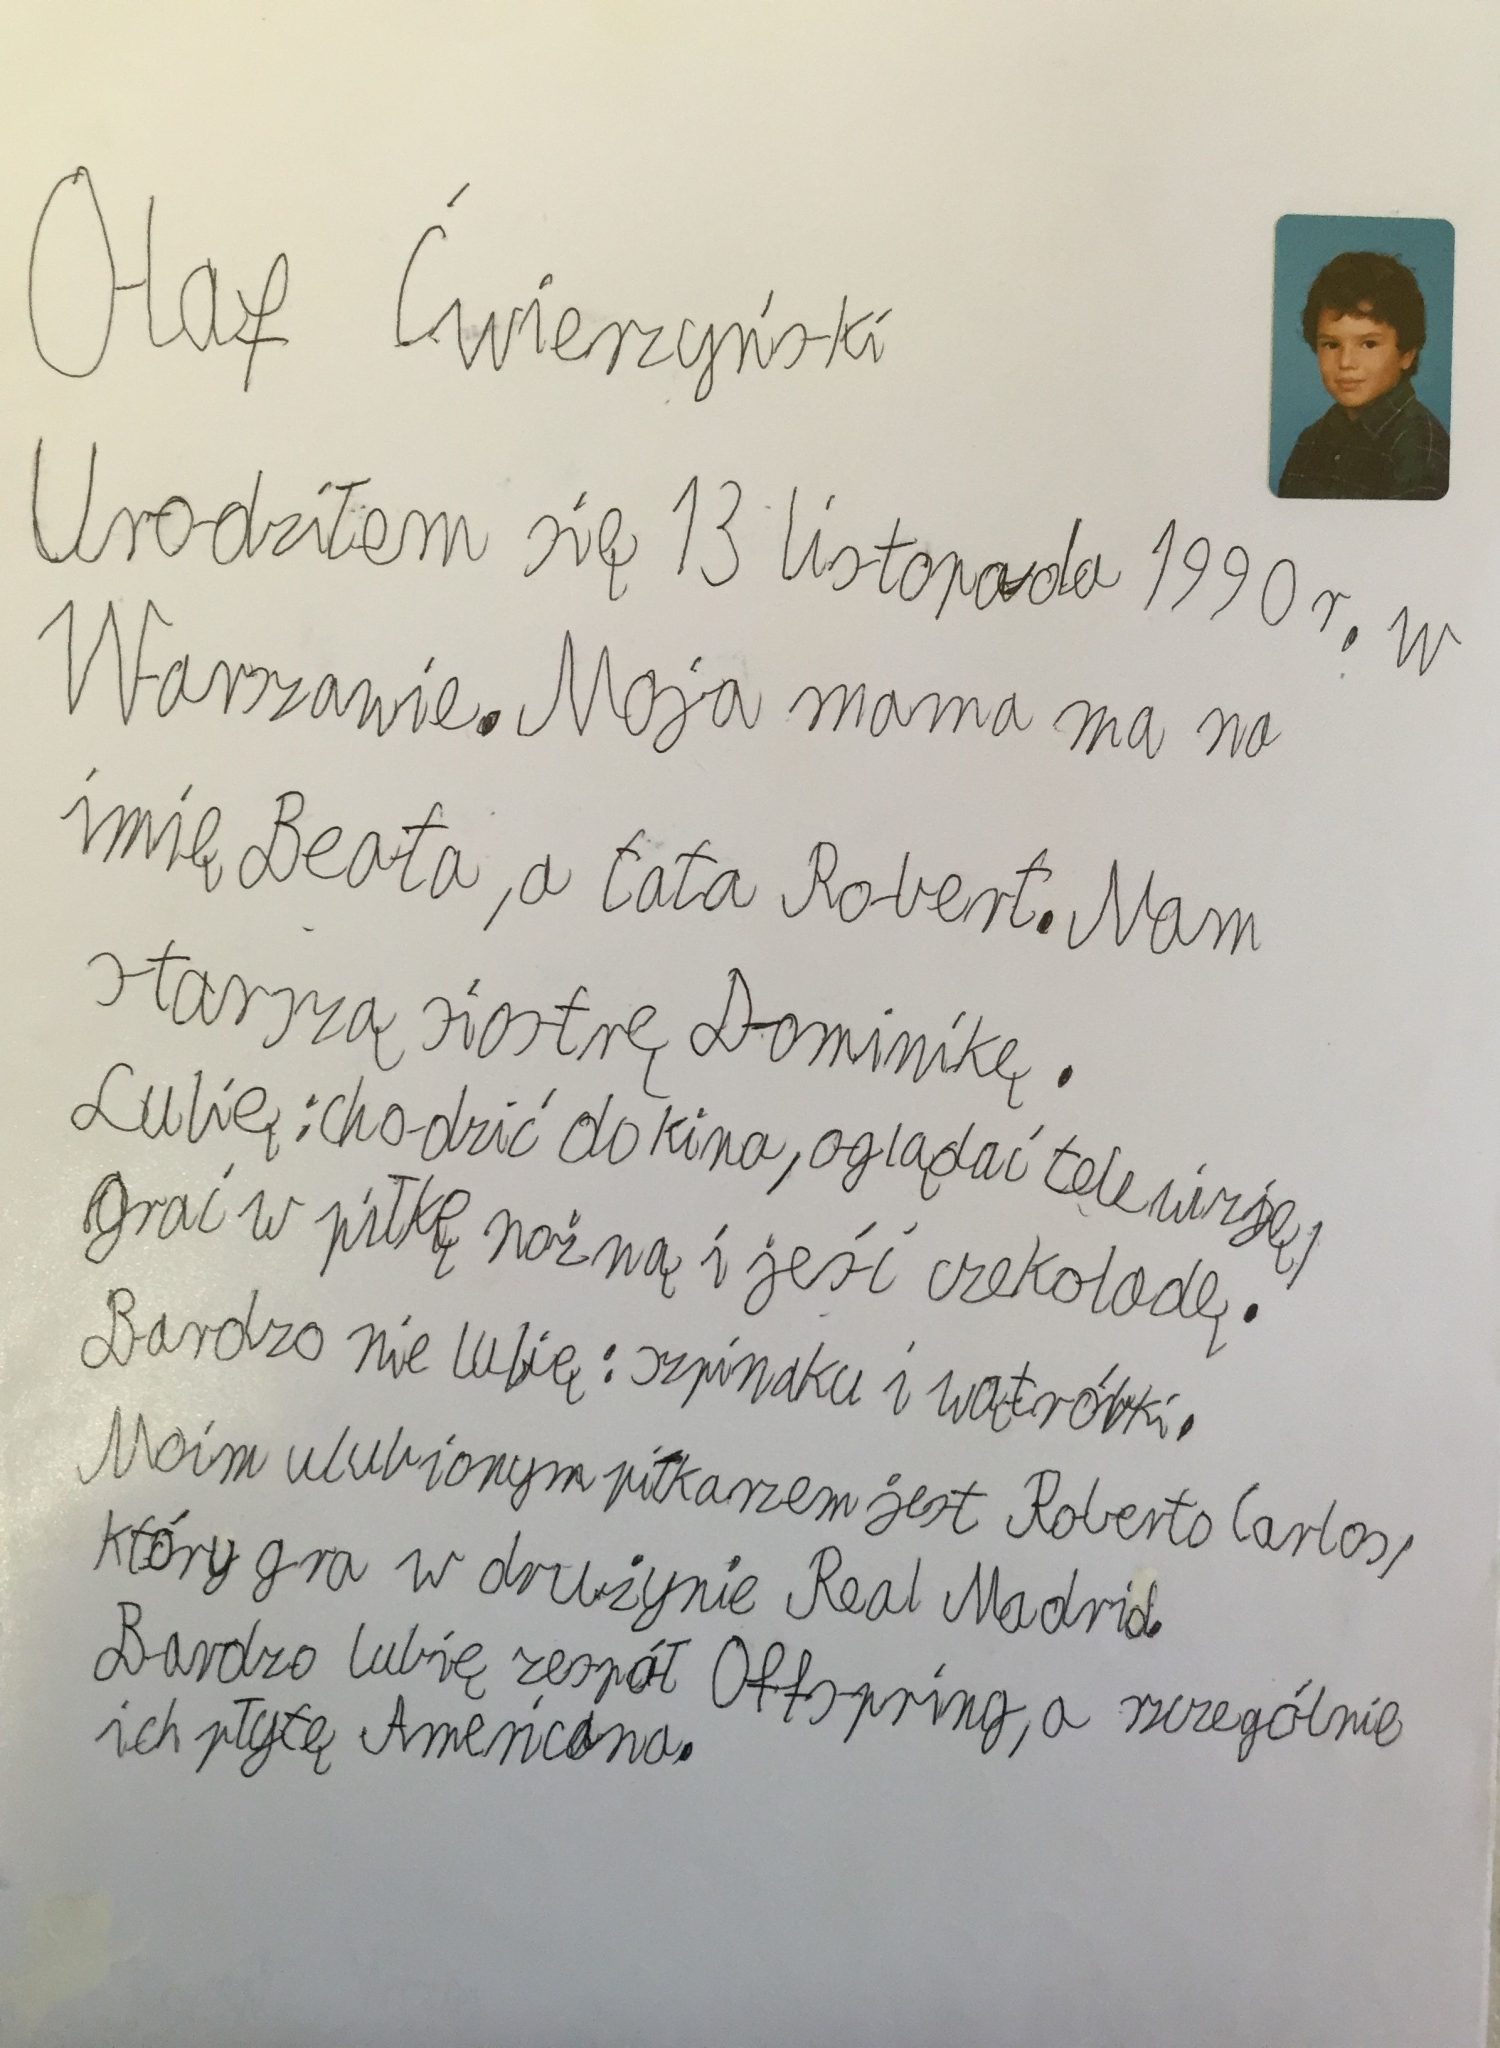 Olaf Ćwierzyński
Urodziłem się 13 listopada 1990 r. w
Warszawie. Moja mama ma na
imię Beata, a tata Robert. Mam
starszą siostrę Dominikę.
Lubię: chodzić do kina, oglądać telewizję,
grać w piłkę nożną i jeść czekoladę.
Bardzo nie lubię: szpinaku i wątróbki.
Moim ulubionym piłkarzem jest Roberto Carlos,
który gra w drużynie Real Madrid.
Bardzo lubię zespół Offspring, a szczególnie
ich płytę Americana.